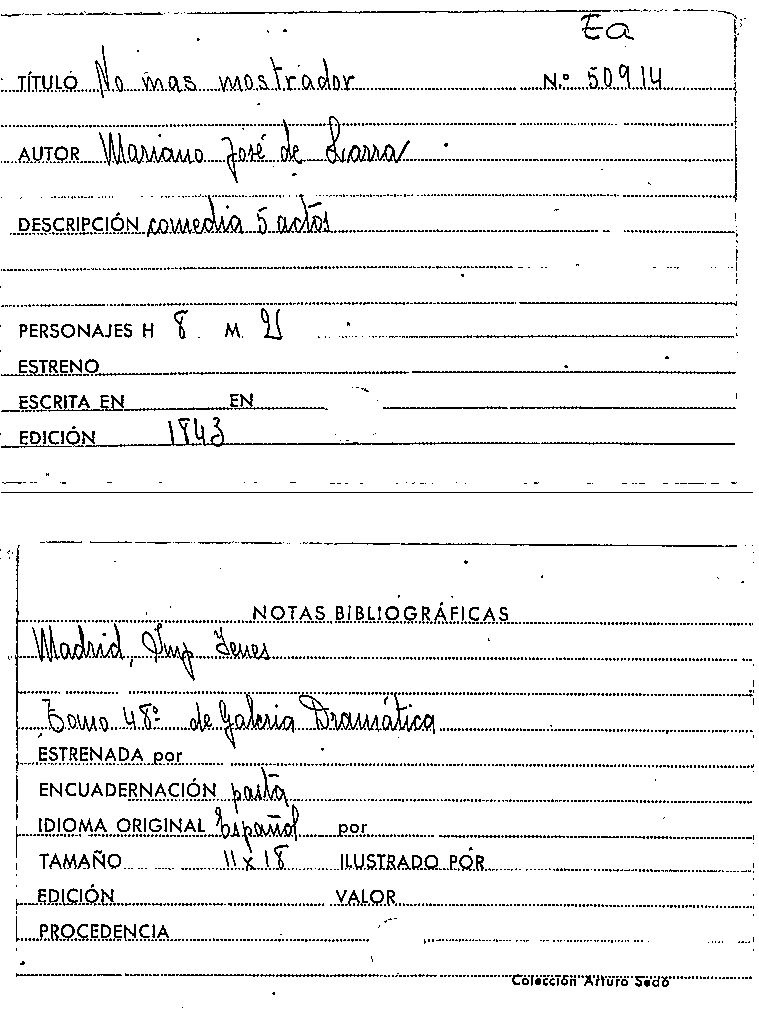 Ea
TÍTULO No mas mostrador N.º 50914
AUTOR Mariano José de Larra
DESCRIPCIÓN comedia 5 actos
PERSONAJES H 8 M.
ESTRENO
ESCRITA EN EN
EDICIÓN 1843
NOTAS BIBLIOGRÁFICAS
Madrid, Imp Yenes
Tomo 48º de Galeria Dramática
ESTRENADA por
ENCUADERNACIÓN pasta
IDIOMA ORIGINAL Español por
TAMAÑO 11 x 18 ILUSTRADO POR
EDICIÓN VALOR
PROCEDENCIA
Colección Arturo Sedó